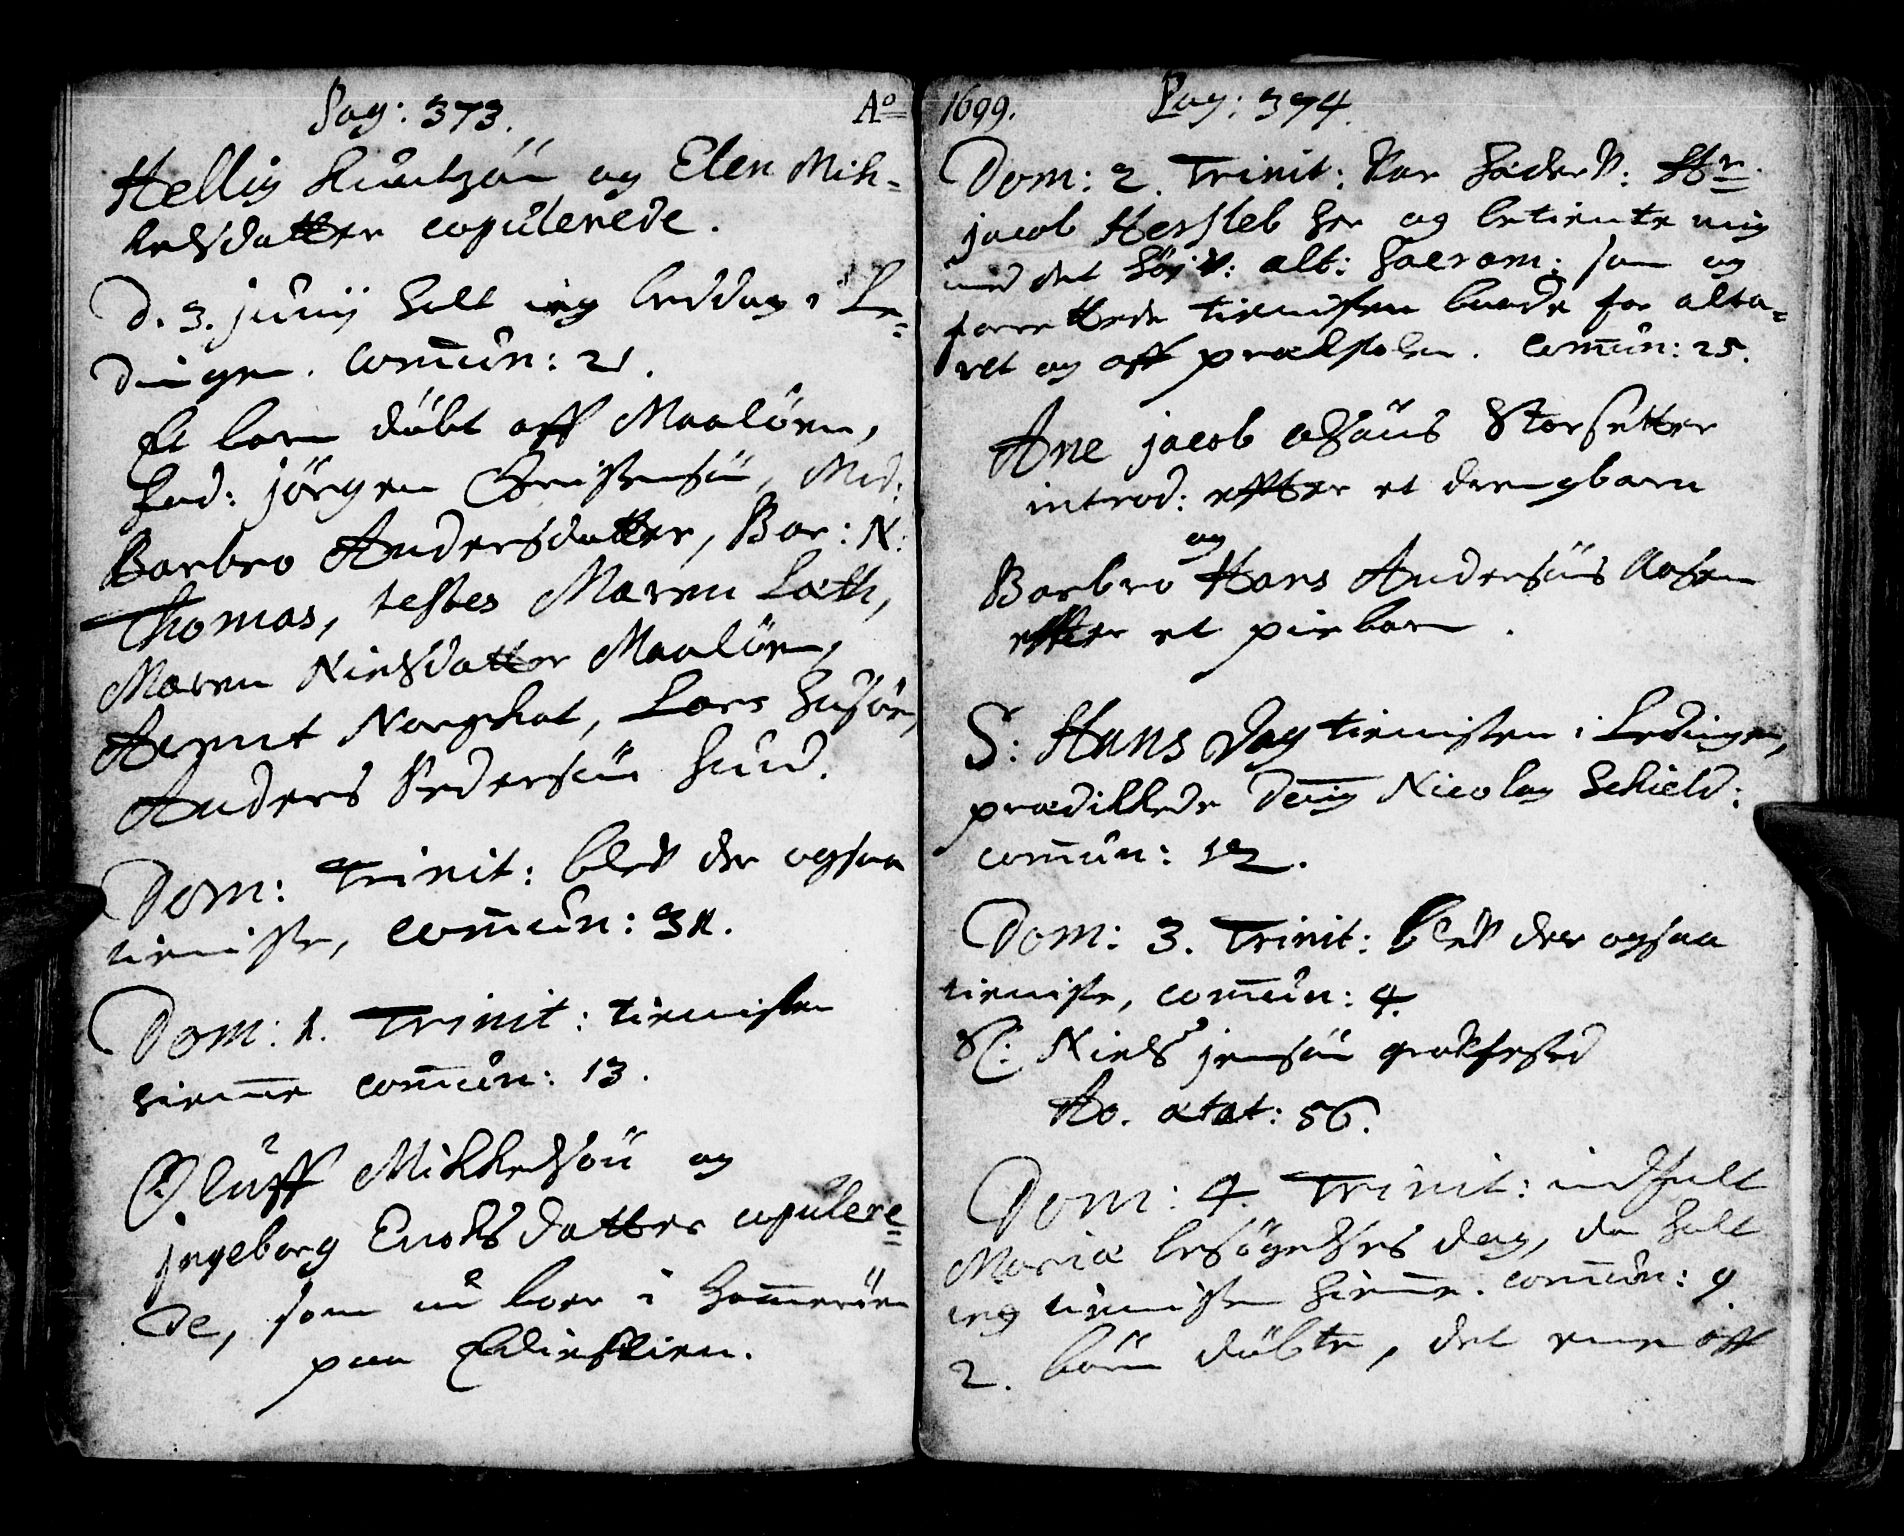 Pag: 373. Aº
Hellig Knudzøn og Elen Mik=
kelsdatter copulerede.
D. 3. junij holt ieg beddag i Le=
dingen. Com̄un: 21.
Et barn døbt aff Maaløen,
Fad: jørgen Christensøn, Mod:
Barbro Andersdatter, Bar: N:
Thomas, testes Maren Lath,
Maren Nielsdatter Maaløen,
Lars
Anders Pedersøn Hund.
Dom: Trinit: blev der ogsaa
tieniste, com̄un: 31.
Dom: 1. Trinit: tienisten
hiem̄e com̄un: 13.
Oluff Mikkelsøn og
jngeborg Enoksdatter copulere=
de, som nu boer i Ham̄erøen
paa
1699. Pag: 374.
Dom: 2. Trinit: Var Hæderv: Hr.
jacob Hersleb her og betiente mig
med det høyv: alt: Sacram: som og
forrettede tienisten baade for alta=
ret og aff prædkstolen. Com̄un: 25.
Ane jacob olsøns Storsetter
introd: effter et drengbarn
og
Barbro Hans Andersøns Aasen
effter et piebarn.
S: Hans Dag tienisten i Ledingen,
prædikkede Nicolay Schield:
com̄un: 12.
Dom: 3. Trinit: blev der ogsaa
tieniste, com̄un: 4.
Sl: Niels jensøn gravfested
Ao. ætat: 56.
Dom: 4. Trinit: indfalt
Mariæ besøgelses dag, da holt
ieg tienisten hiem̄e. com̄un: 9.
2. børn døbte, det ene aff